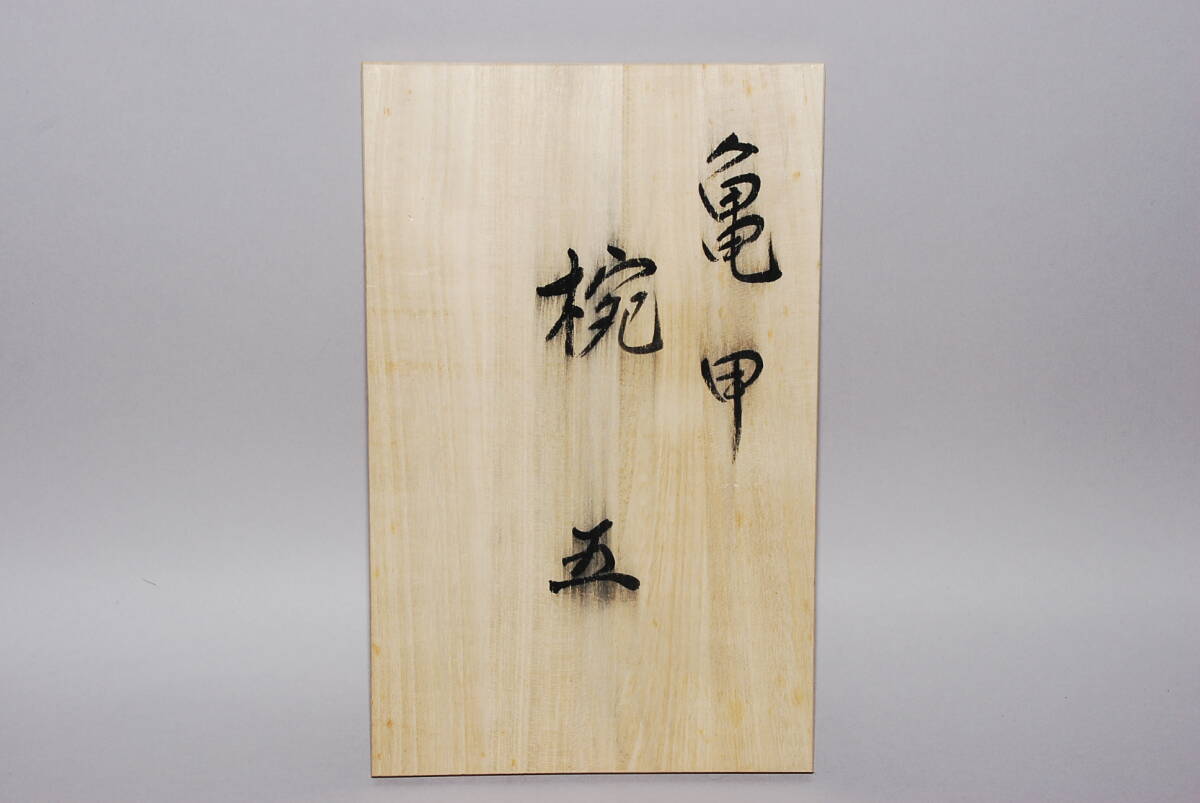 亀甲
椀 五